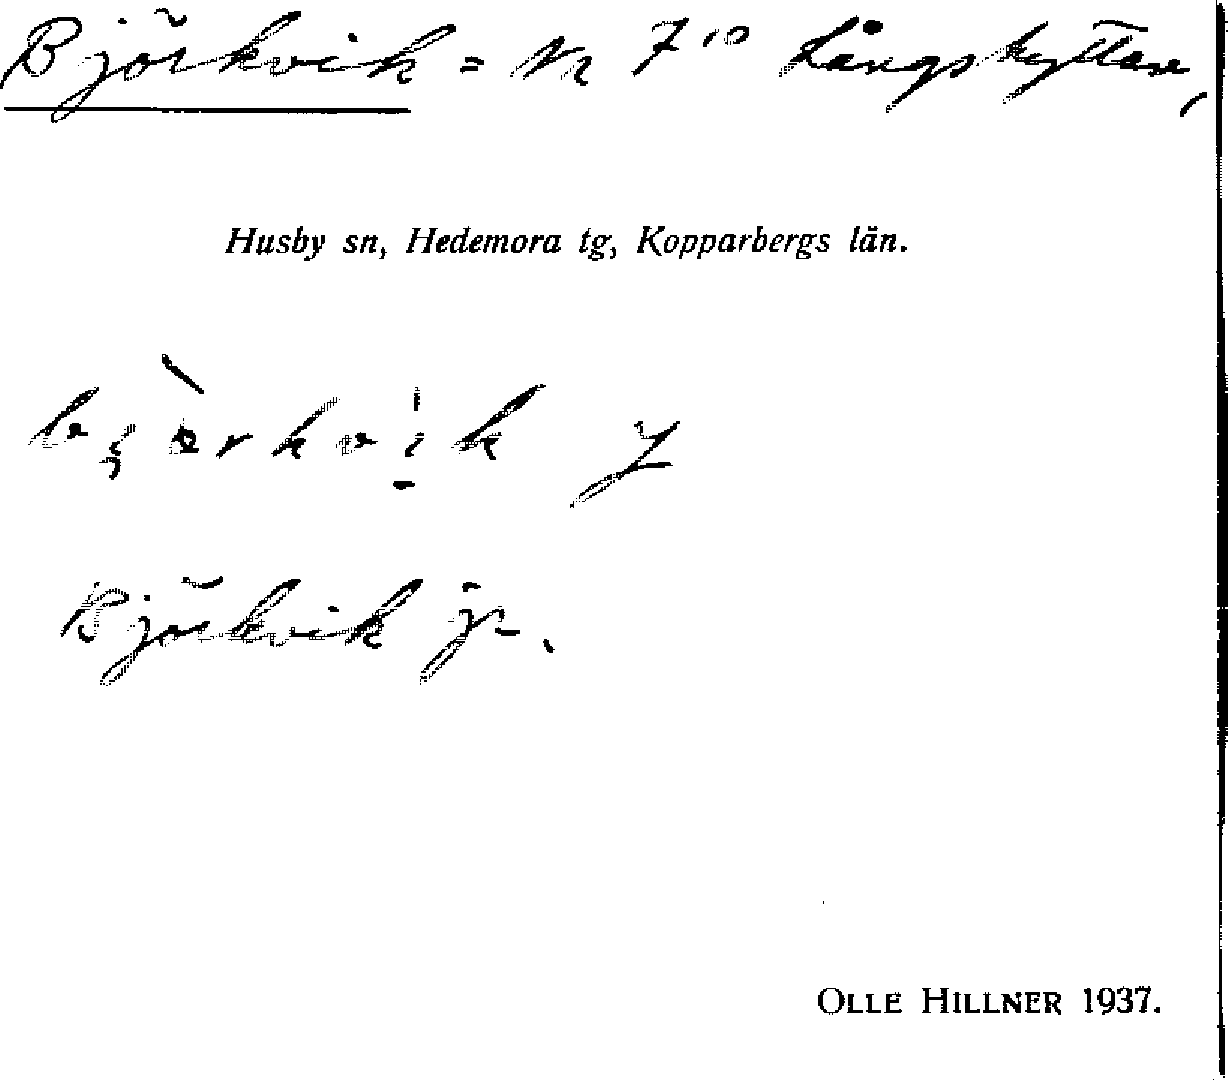 Björkvik = Nr 7¹⁰ Långshyttan,
Husby sn, Hedemora tg, Kopparbergs län.
Björkvik jr.
OLLE HILLNER 1937.